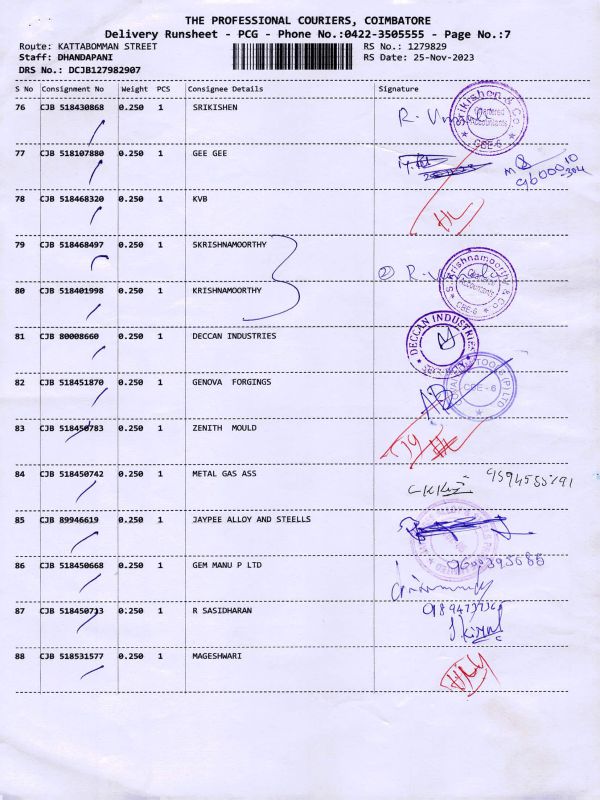 THE PROFESSIONAL COURIERS, COIMBATORE
Delivery Runsheet - PCG - Phone No.:0422-3505555 - Page No.:7
Route: KATTABOMMAN STREET RS No.: 1279829
Staff: DHANDAPANI RS Date: 25-Nov-2023
DRS No.: DCJB127982907
S No Consignment No Weight PCS Consignee Details Signature
76 CJB 518430868 0.250 1 SRIKISHEN
Srikishen & Co
Chartered Accountants
CBE-6
77 CJB 518107880 0.250 1 GEE GEE
78 CJB 518468320 0.250 1 KVB
79 CJB 518468497 0.250 1 SKRISHNAMOORTHY
S. Krishnamoorthy & Co
Accountants
CBE-6
80 CJB 518401998 0.250 1 KRISHNAMOORTHY
81 CJB 80008660 0.250 1 DECCAN INDUSTRIES
DECCAN INDUSTRIES
82 CJB 518451870 0.250 1 GENOVA FORGINGS
CBE - 6
83 CJB 518450783 0.250 1 ZENITH MOULD
84 CJB 518450742 0.250 1 METAL GAS ASS
85 CJB 89946619 0.250 1 JAYPEE ALLOY AND STEELLS
86 CJB 518450668 0.250 1 GEM MANU P LTD
87 CJB 518450713 0.250 1 R SASIDHARAN
88 CJB 518531577 0.250 1 MAGESHWARI